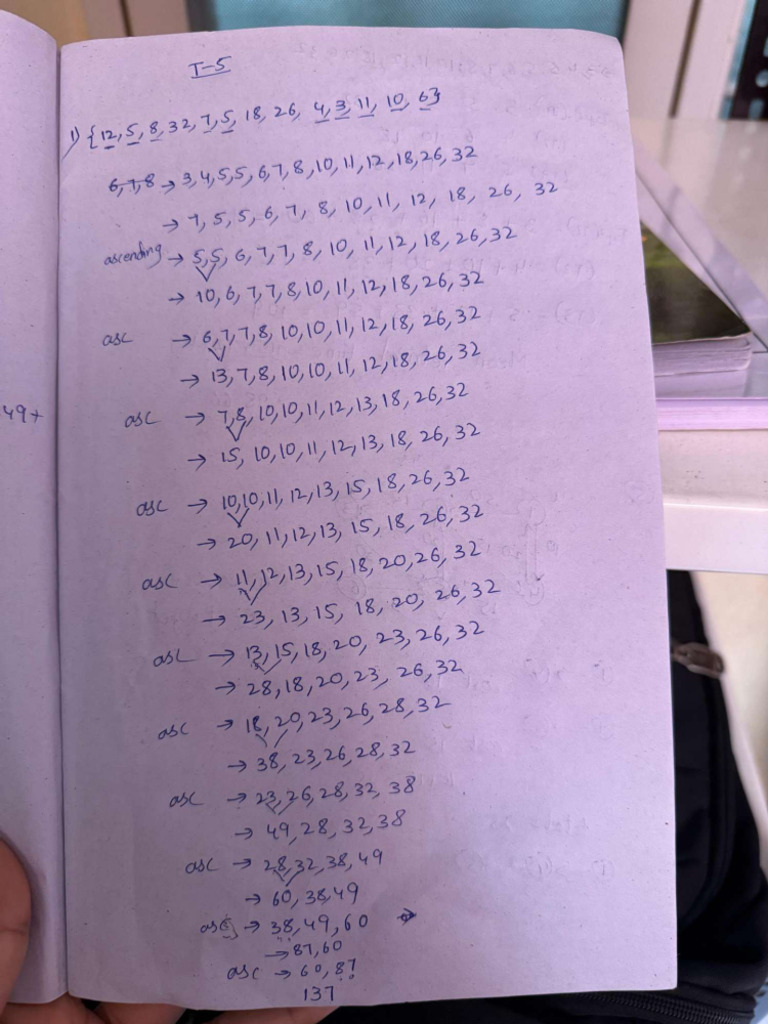 T-5
1) {12, 5, 8, 32, 7, 5, 18, 26, 4, 3, 11, 10, 6}
6,7,8 → 3, 4, 5, 5, 6, 7, 8, 10, 11, 12, 18, 26, 32
→ 7, 5, 5, 6, 7, 8, 10, 11, 12, 18, 26, 32
ascending → 5, 5, 6, 7, 7, 8, 10, 11, 12, 18, 26, 32
→ 10, 6, 7, 7, 8, 10, 11, 12, 18, 26, 32
asc → 6, 7, 7, 8, 10, 10, 11, 12, 18, 26, 32
→ 13, 7, 8, 10, 10, 11, 12, 18, 26, 32
49+
asc → 7, 8, 10, 10, 11, 12, 13, 18, 26, 32
→ 15, 10, 10, 11, 12, 13, 18, 26, 32
asc → 10, 10, 11, 12, 13, 15, 18, 26, 32
→ 20, 11, 12, 13, 15, 18, 26, 32
asc → 11, 12, 13, 15, 18, 20, 26, 32
→ 23, 13, 15, 18, 20, 26, 32
asc → 13, 15, 18, 20, 23, 26, 32
→ 28, 18, 20, 23, 26, 32
asc → 18, 20, 23, 26, 28, 32
→ 38, 23, 26, 28, 32
asc → 23, 26, 28, 32, 38
→ 49, 28, 32, 38
asc → 28, 32, 38, 49
→ 60, 38, 49
asc → 38, 49, 60 →
→ 87, 60
asc → 60, 87
137